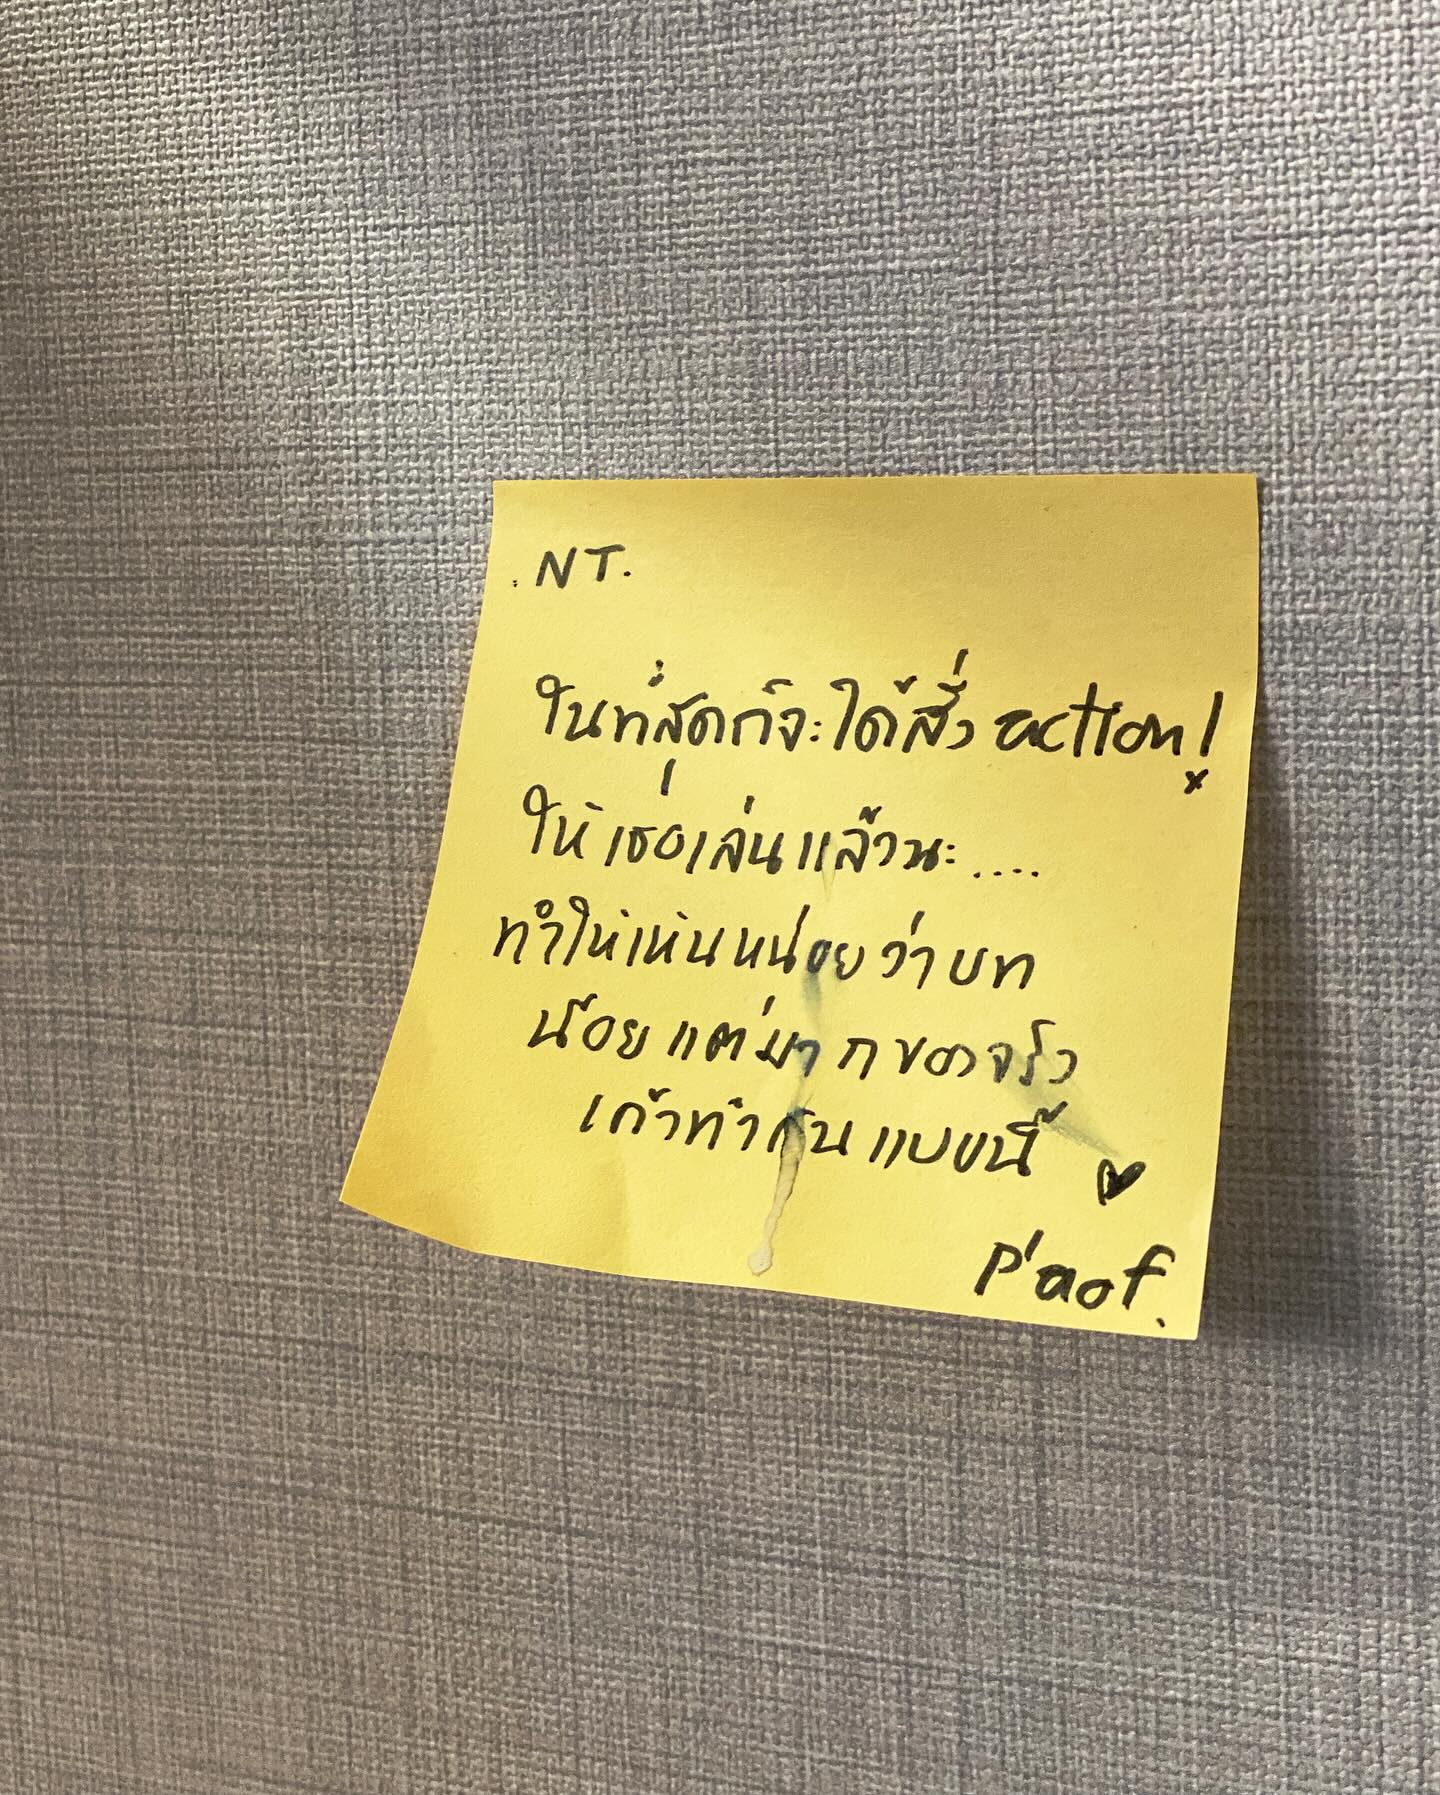 NT.
ในที่สุดก็จะได้สั่ง action!
ให้เธอเล่นแล้วนะ....
ทำให้เห็นหน่อยว่าบท
น้อยแต่มาก ของจริง
เค้าทำกันแบบนี้
P'aof.